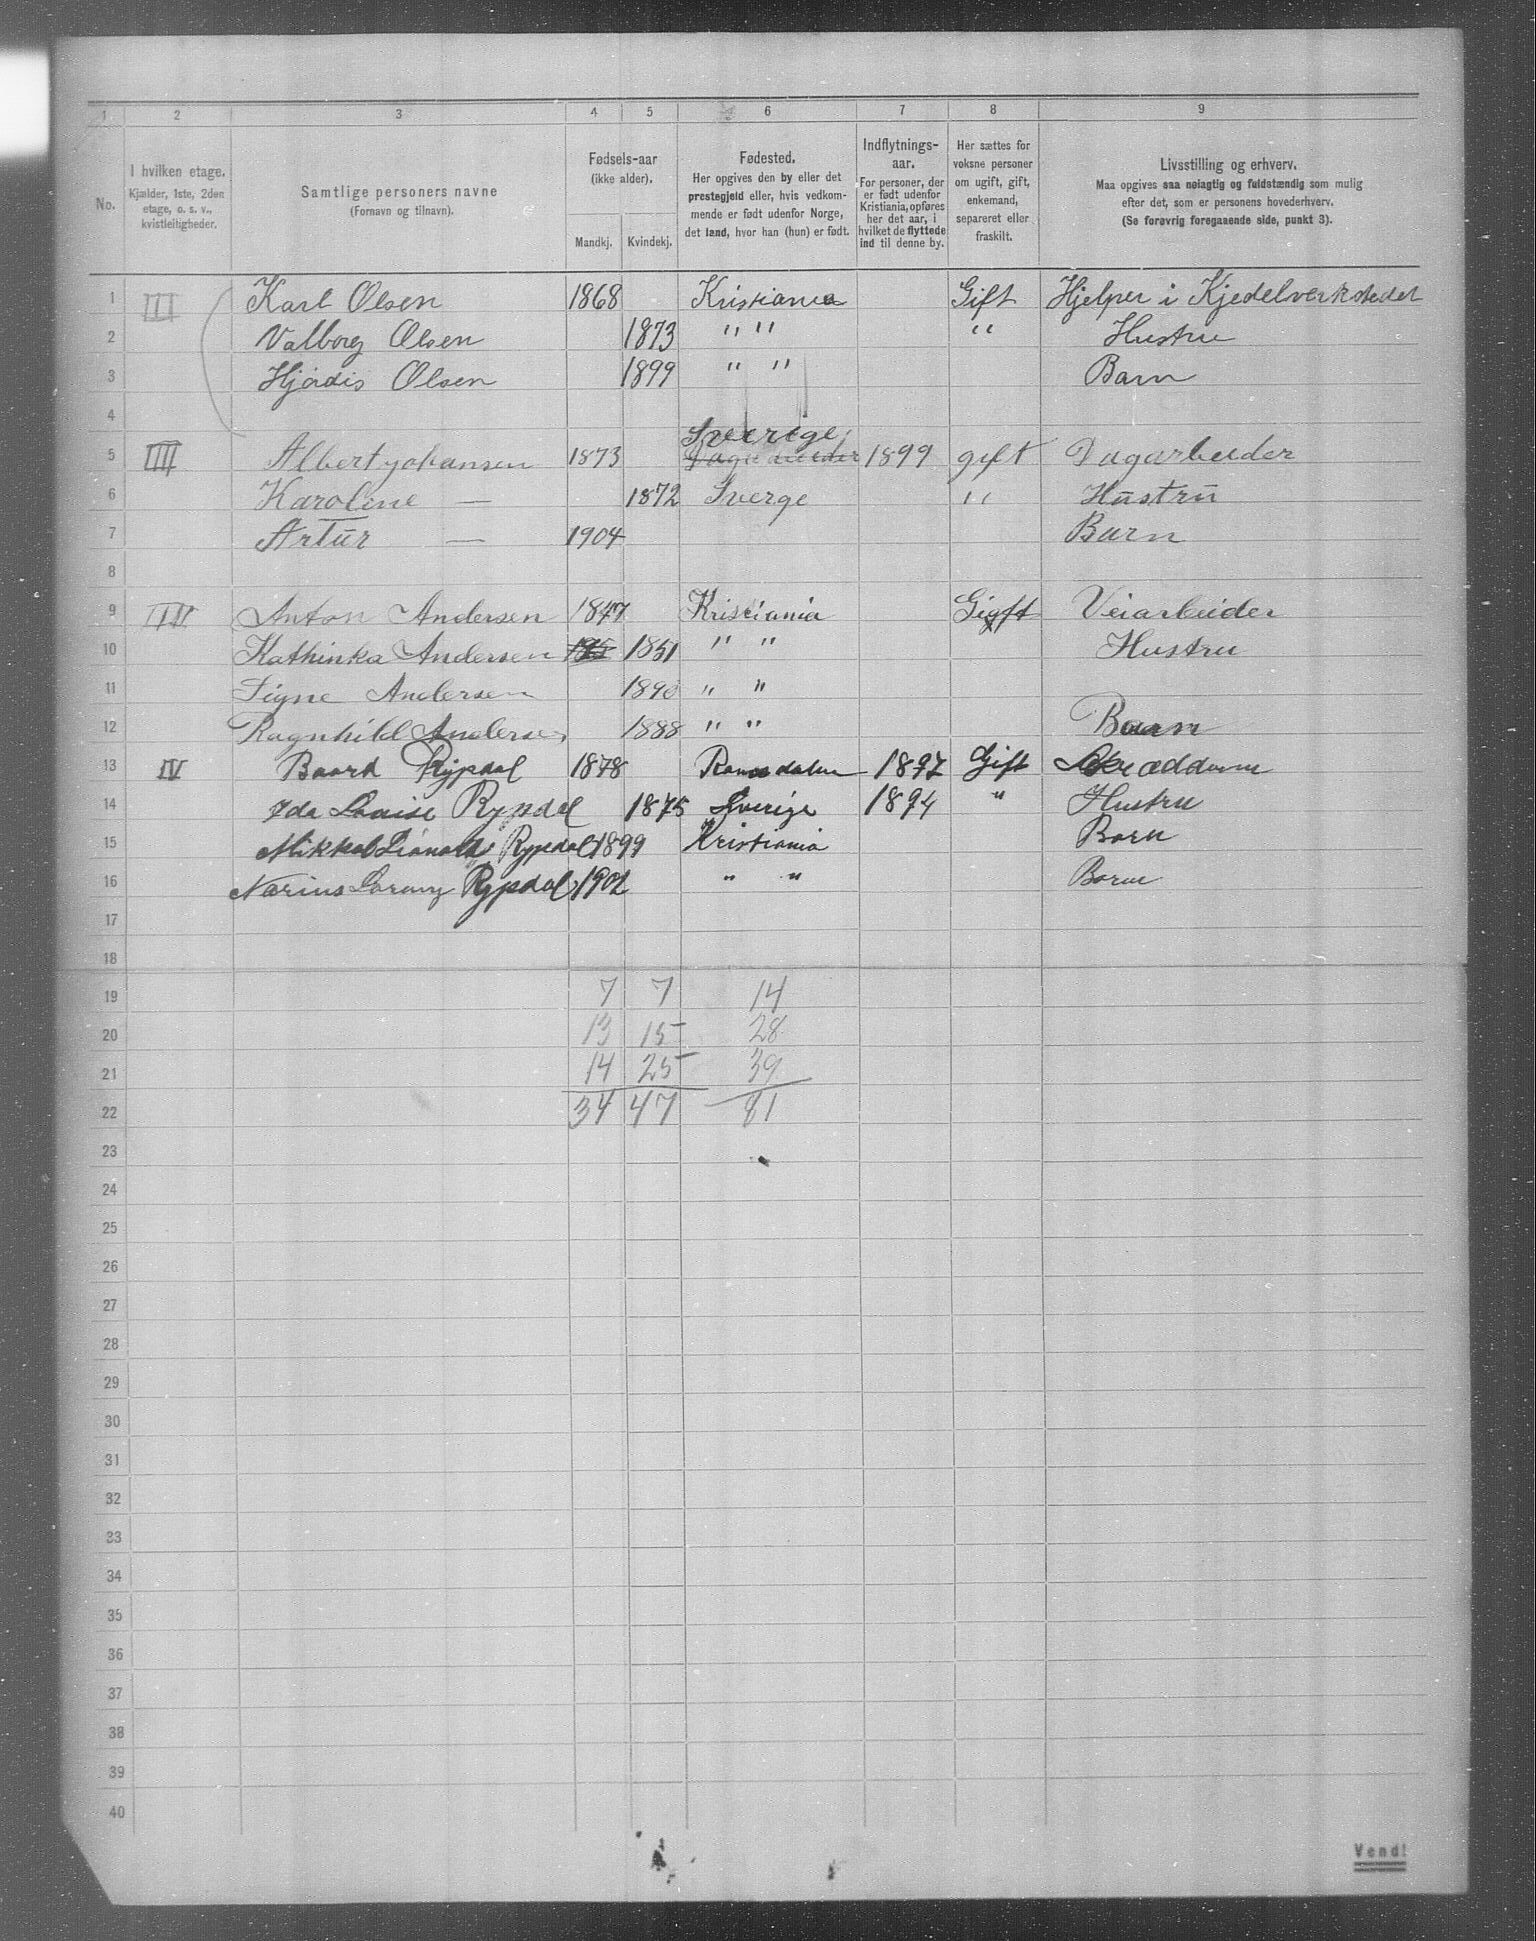 1 2 3 4 5 6 7 8 9
No. I hvilken etage. Kjælder, 1ste, 2den etage, o. s. v., kvistleiligheder. Samtlige personers navne (Fornavn og tilnavn). Fødsels-aar (ikke alder). Mandkj. Kvindekj. Fødested. Her opgives den by eller det prestegjeld eller, hvis vedkommende er født udenfor Norge, det land, hvor han (hun) er født. Indflytnings-aar. For personer, der er født udenfor Kristiania, opføres her det aar, i hvilket de flyttede ind til denne by. Her sættes for voksne personer om ugift, gift, enkemand, separeret eller fraskilt. Livsstilling og erhverv. Maa opgives saa nøiagtig og fuldstændig som mulig efter det, som er personens hovederhverv. (Se forøvrig foregaaende side, punkt 3).
1 III Karl Olsen 1868 Kristiania Gift Hjelper i Kjedelverkstedet
2 Valborg Olsen 1873 " " " Hustru
3 Hjørdis Olsen 1899 " " Barn
4
Sverige
5 III Albert johansen 1873 1899 gift Dagarbeider
6 Karoline — 1872 Sverge " Hustru
7 Artur — 1904 Barn
8
9 Anton Andersen 1847 Kristiania Gift Veiarbeider
10 Kathinka Andersen 1851 " " Hustru
11 Signe Andersen 1890 " "
12 Ragnhild Andersen 1888 " " Barn
13 IV Baard Rypdal 1878 Romsdalen 1897 Gift
14 Ida Louise Rypdal 1875 Sverige 1894 " Hustru
15 Mikkal Rypdal 1899 Kristiania Barn
16 Rypdal 1902 " " Barn
17
18
19 7 7 14
20 13 15 28
21 14 25 39
22 34 47 81
23
24
25
26
27
28
29
30
31
32
33
34
35
36
37
38
39
40
Vend!